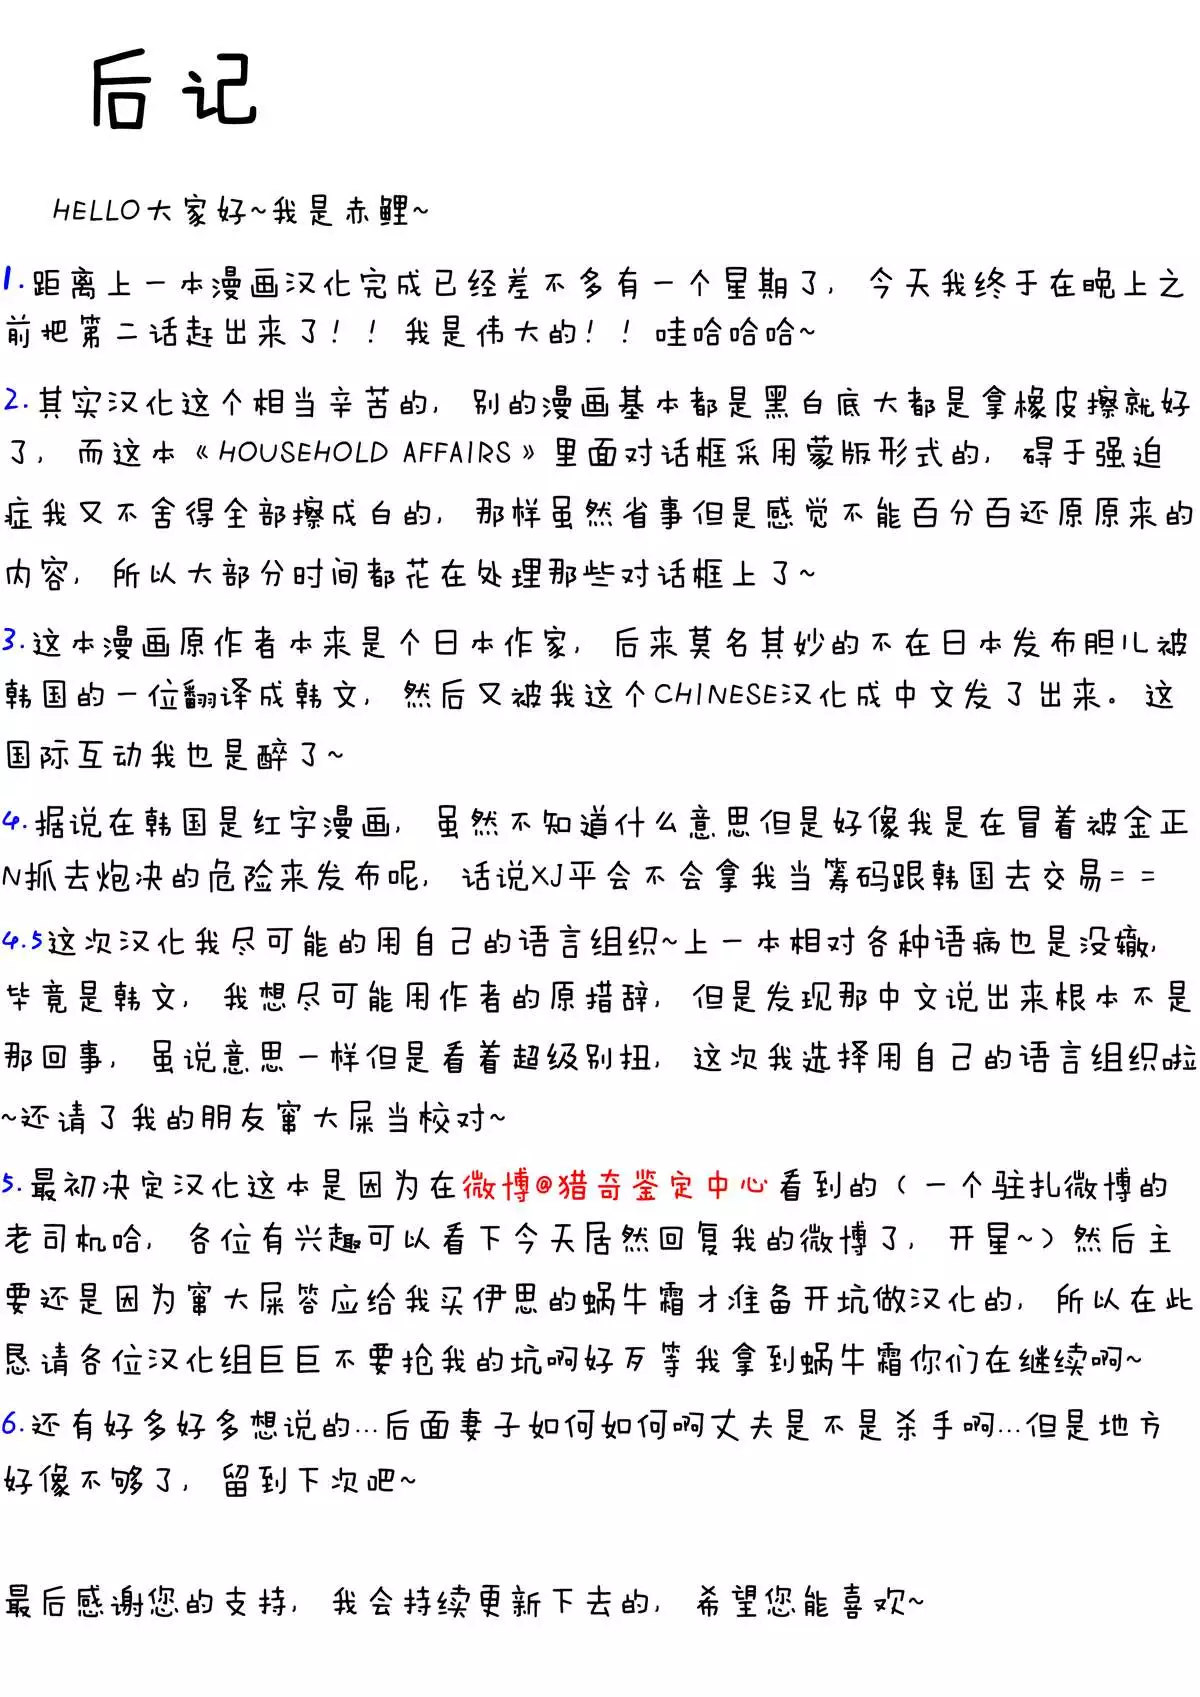 后记
HELLO大家好~我是赤鲤~
1.距离上一本漫画汉化完成已经差不多有一个星期了,今天我终于在晚上之
前把第二话赶出来了!!我是伟大的!!哇哈哈哈~
2.其实汉化这个相当辛苦的,别的漫画基本都是黑白底大都是拿橡皮擦就好
了,而这本《HOUSEHOLD AFFAIRS》里面对话框采用蒙版形式的,碍于强迫
症我又不舍得全部擦成白的,那样虽然省事但是感觉不能百分百还原原来的
内容,所以大部分时间都花在处理那些对话框上了~
3.这本漫画原作者本来是个日本作家,后来莫名其妙的不在日本发布胆儿被
韩国的一位翻译成韩文,然后又被我这个CHINESE汉化成中文发了出来。这
国际互动我也是醉了~
4.据说在韩国是红字漫画,虽然不知道什么意思但是好像我是在冒着被金正
N抓去炮决的危险来发布呢,话说XJ平会不会拿我当筹码跟韩国去交易= =
4.5这次汉化我尽可能的用自己的语言组织~上一本相对各种语病也是没辙,
毕竟是韩文,我想尽可能用作者的原措辞,但是发现那中文说出来根本不是
那回事,虽说意思一样但是看着超级别扭,这次我选择用自己的语言组织啦
~还请了我的朋友窜大屎当校对~
5.最初决定汉化这本是因为在微博@猎奇鉴定中心看到的(一个驻扎微博的
老司机哈,各位有兴趣可以看下今天居然回复我的微博了,开星~)然后主
要还是因为窜大屎答应给我买伊思的蜗牛霜才准备开坑做汉化的,所以在此
恳请各位汉化组巨巨不要抢我的坑啊好歹等我拿到蜗牛霜你们在继续啊~
6.还有好多好多想说的...后面妻子如何如何啊丈夫是不是杀手啊...但是地方
好像不够了,留到下次吧~
最后感谢您的支持,我会持续更新下去的,希望您能喜欢~